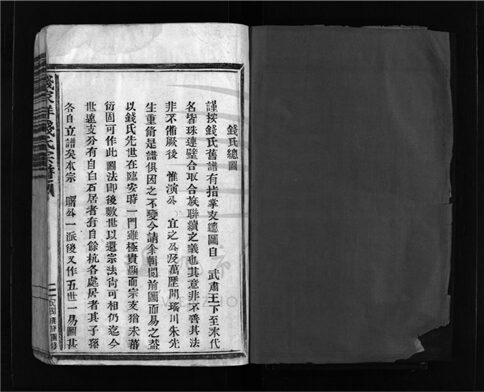 錢氏總圖
謹按錢氏舊譜有指掌支總圖自 武肅王下至末代
名皆珠連璧合取合族聯續之義也其意非不善其法
非不備厥後 惟演公 宜之公及萬歷間瑤川朱先
生重脩是譜俱因之不變今請全輯閱前圖而易之蓋
以錢氏先世在臨安時一門雖極貴顯而宗支猶未蕃
衍固可作此圖法即後數世以還宗法尚可相仍迄今
世遠支分有自白石居者有自餘杭各處居者其子孫
各自立譜矣本宗 公一派後又作五世一易圖其